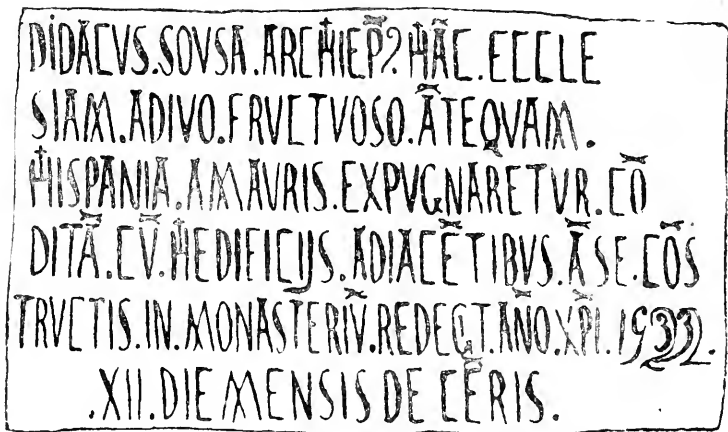 DIDACVS.SOVSA.ARCHIEP̄? HĀC.ECCLE
SIAM.ADIVO.FRVCTVOSO.ĀTEQVAM.
HISPANIA.AMAVRIS.EXPVGNARETVR.CŌ
DITĀ.CV̄.HEDIFICIJS.ADIACĒTIBVS.ĀSE.CŌS
TRVCTIS.IN.MONASTERIV̄.REDEGT.AN̄O.XP̄I.
.XII.DIE MENSIS DE CĒRIS.